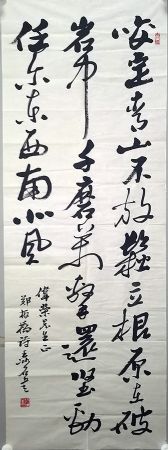 咬定青山不放鬆立根原在破
岩中千磨萬擊還堅勁
任尔東西南北風
偉榮先生正
郑板橋詩